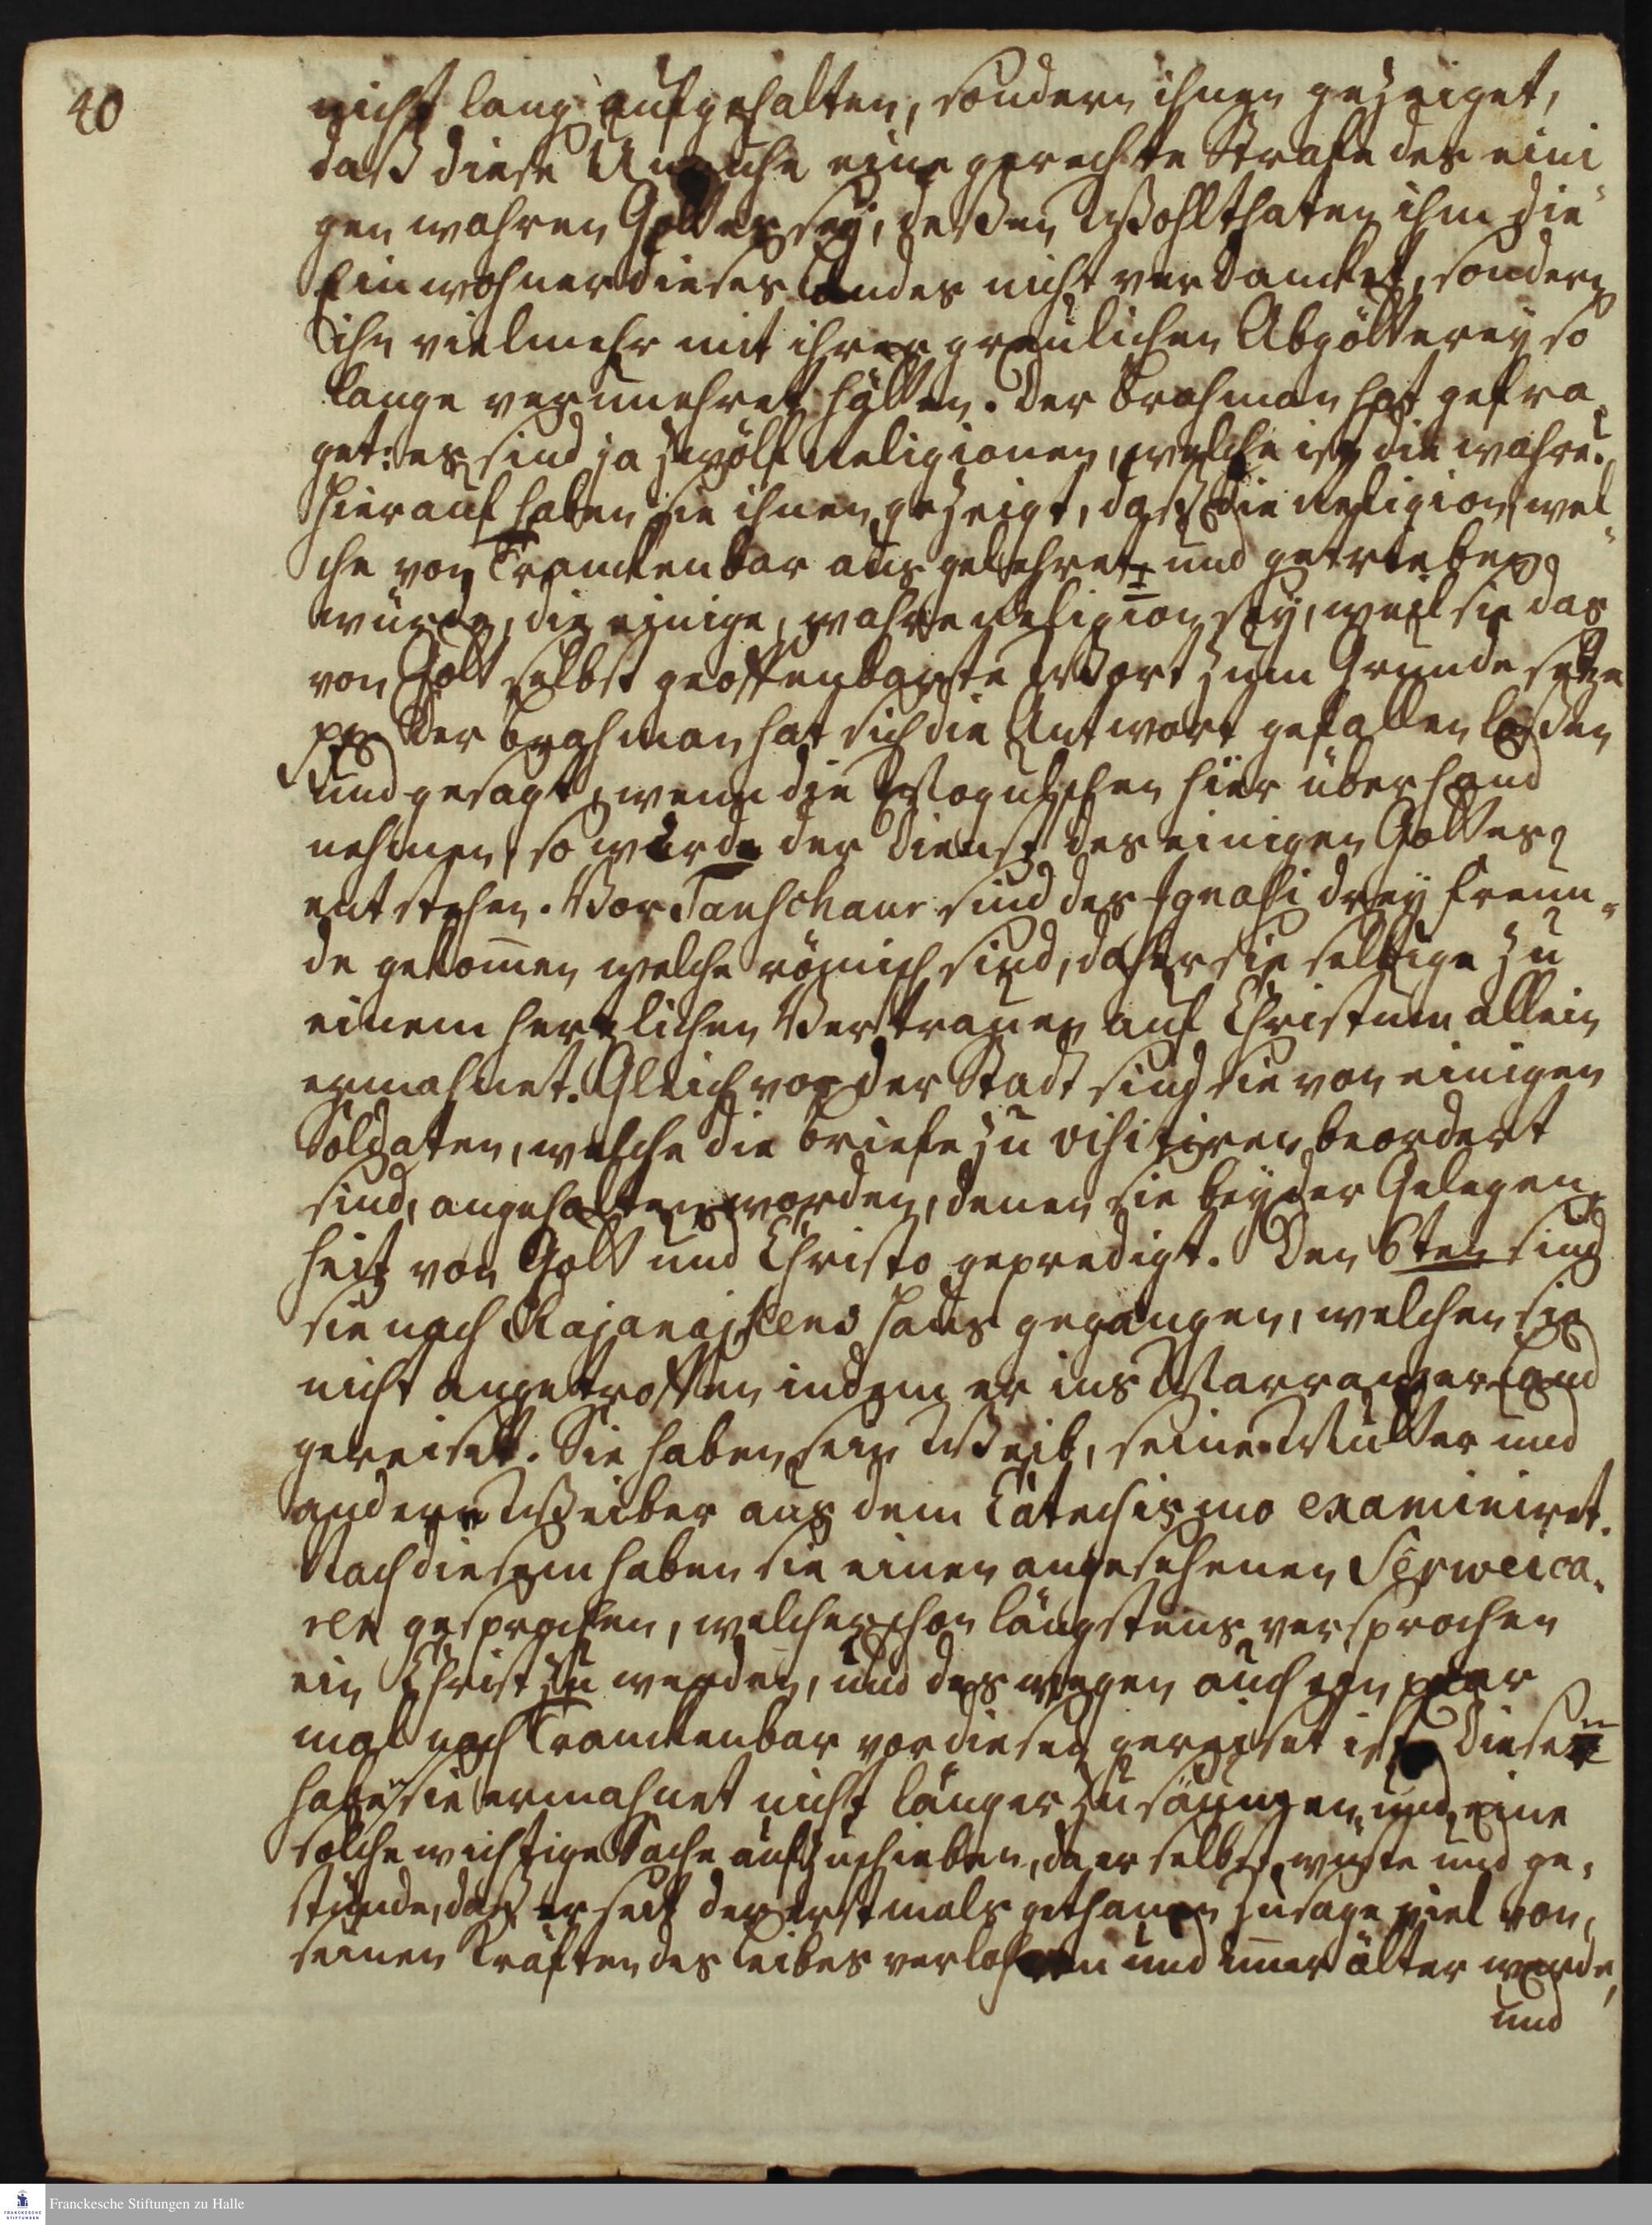 40
nicht lang aufgehalten, sondern ihnen gezeiget,
daß diese Unruhe eine gerechte Strafe des eini
gen wahren Gottes sey, deßen Wohlthaten ihm die
Einwohner dieses Landes nicht verdancket, sondern
ihn vielmehr mit ihrer greulichen Abgötterey so
lange verunehret hätten. Der Brahman hat gefra„
get: es sind ja zwölf Religionen, welche ist die wahre?
Hierauf haben sie ihnen gezeigt, daß die Religion, wel„
che von Tranckenbar aus gelehret und getrieben
würde, die einige, wahre Religion sey, weil sie das
von Gott selbst geoffenbarte Wort zum Grunde setze
pp Der Brahman hat sich die Antwort gefallen laßen
und gesagt, wenn die Mogulschen hier überhand
nehmen, so würde der Dienst des einigen Gottes
entstehen. Vor Tanschaur sind des Ignasi drey Freun„
de gekom̄en welche römisch sind, daher sie selbige zu
einem hertzlichen Vertrauen auf Christum allein
ermahnet. Gleich vor der Stadt sind sie von einigen
Soldaten, welche die Briefe zu visitiren beordert
sind, angehalten worden, denen sie bey der Gelegen„
heit von Gott und Christo gepredigt. Den 6ten sind
sie nach Rajanaikens Haus gegangen, welchen sie
nicht angetroffen indem er ins Marrawer Land
gereiset. Sie haben sein Weib, seine Mutter und
andere Weiber aus dem Catechismo examiniret.
Nach diesem haben sie einen angesehenen Serweica„
ren gesprochen, welcher schon längstens versprochen
ein Christ zu werden, und deswegen auch ein paar
mal nach Tranckenbar vor diesen gereiset ist. Diesen
haben sie ermahnet nicht länger zu säumen und eine
solche wichtige Sache aufzuschieben, da er selbst wüste und ge„
stünde, daß er seit der erstmals gethanen Zusage viel von
seinen Kräften des Leibes verlohren und im̄er älter werde,
und
Franckesche Stiftungen zu Halle
FRANCKESCHE
STIFTUNGEN